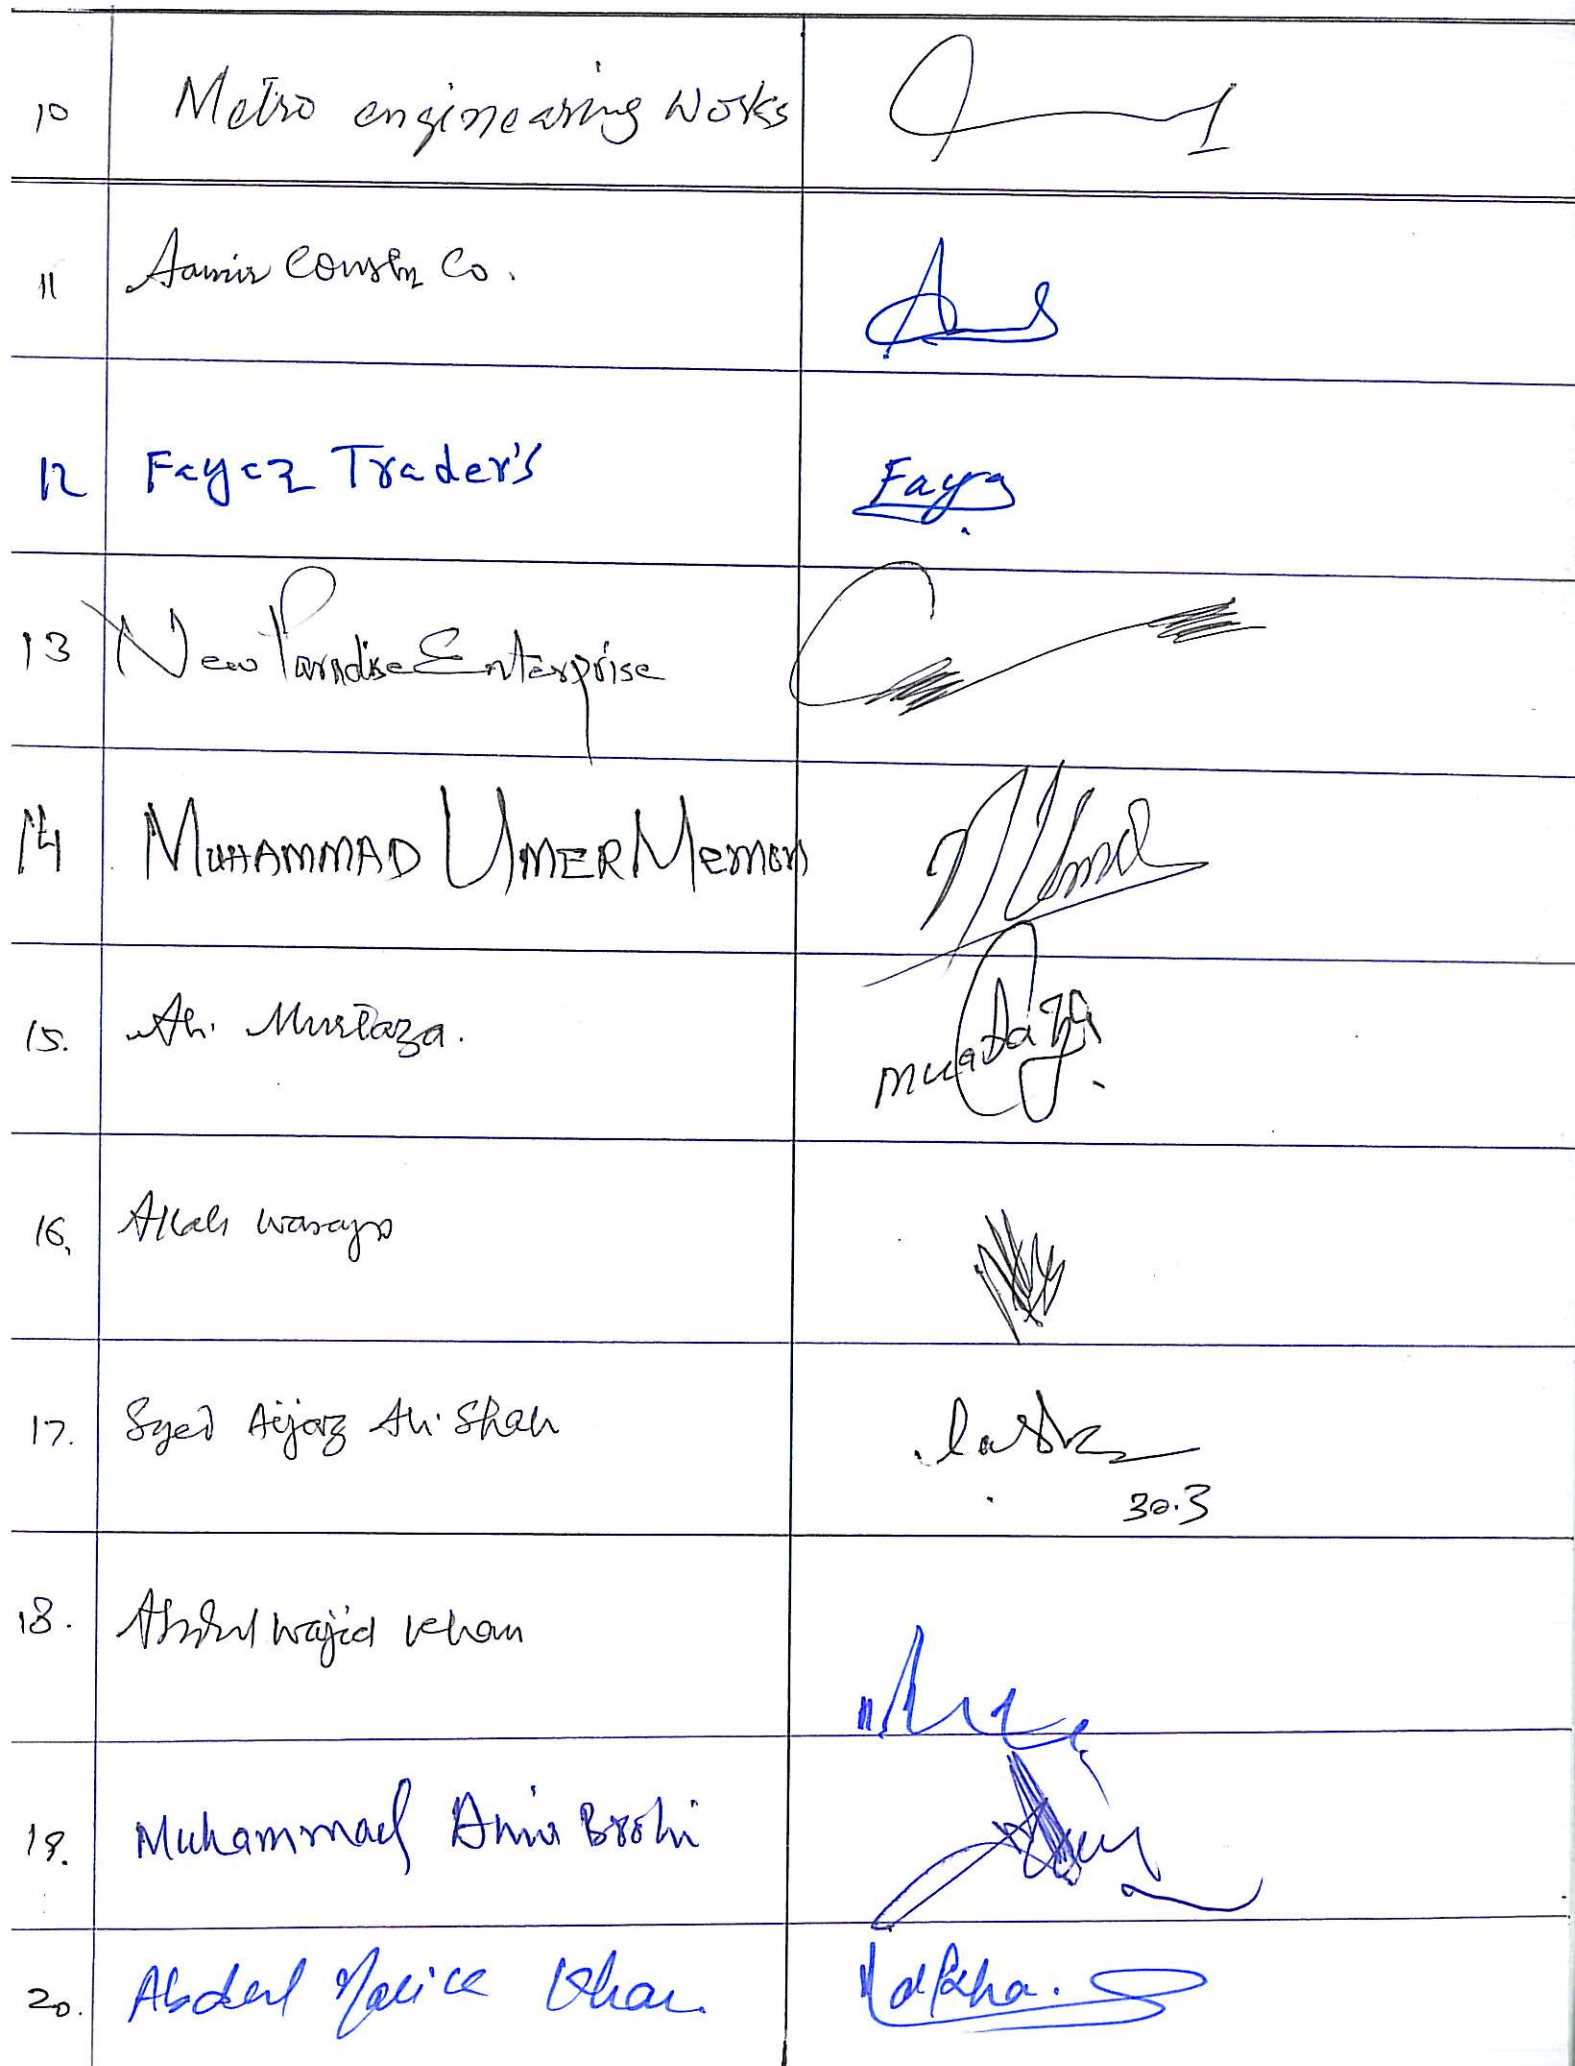 10 Metro engineering Works
11 Aamir Constn Co.
12 Fayaz Trader's Fayz
13 New Paradise Enterprise
14 MUHAMMAD UMER MEMON
15. Ali Murtaza. Murtaza
16. Allah Warayo
17. Syed Aijaz Ali Shah
30.3
18. Abdul Wajid Khan
19. Muhammad Amir Brohi
20. Abdul Malick Khan.